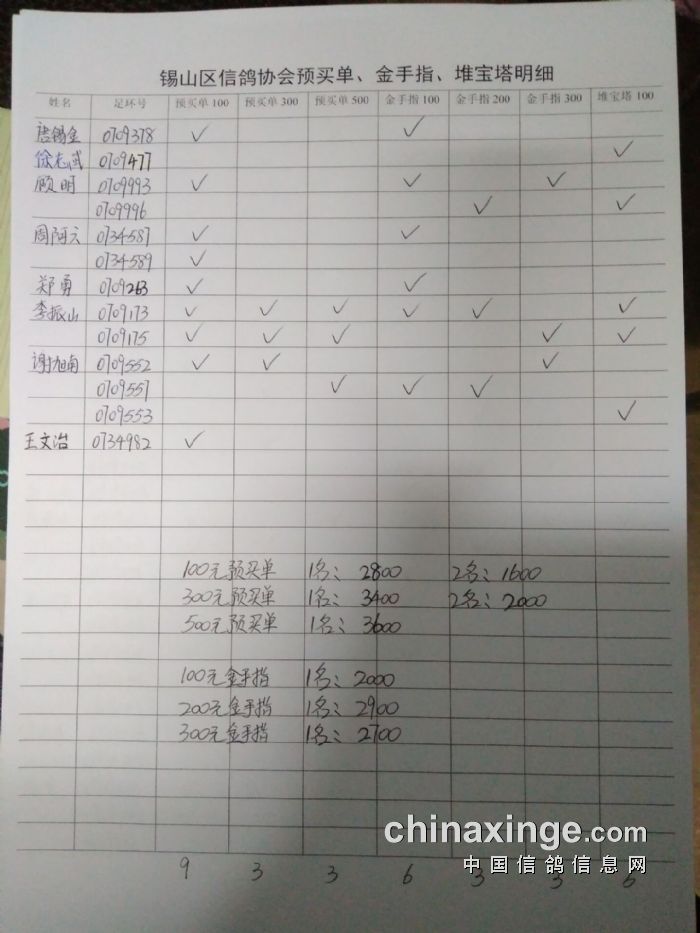 锡山区信鸽协会预买单、金手指、堆宝塔明细
姓名 足环号 预买单 100 预买单 300 预买单 500 金手指 100 金手指 200 金手指 300 堆宝塔 100
唐锡金 0709378 ✓ ✓
0709477 ✓
顾明 0709993 ✓ ✓ ✓
0709996 ✓ ✓
周阿六 0734587 ✓ ✓
0734589 ✓
郑勇 0709263 ✓ ✓
李振山 0709173 ✓ ✓ ✓ ✓ ✓ ✓
0709175 ✓ ✓ ✓ ✓ ✓
谢旭南 0709552 ✓ ✓ ✓
0709557 ✓ ✓ ✓
0709553 ✓
王文治 0734982 ✓
100元预买单 1名: 2800 2名: 1600
300元预买单 1名: 3400 2名: 2000
500元预买单 1名: 3600
100元金手指 1名: 2000
200元金手指 1名: 2900
300元金手指 1名: 2700
chinaxinge.com
中国信鸽信息网
9 3 3 6 3 3 5